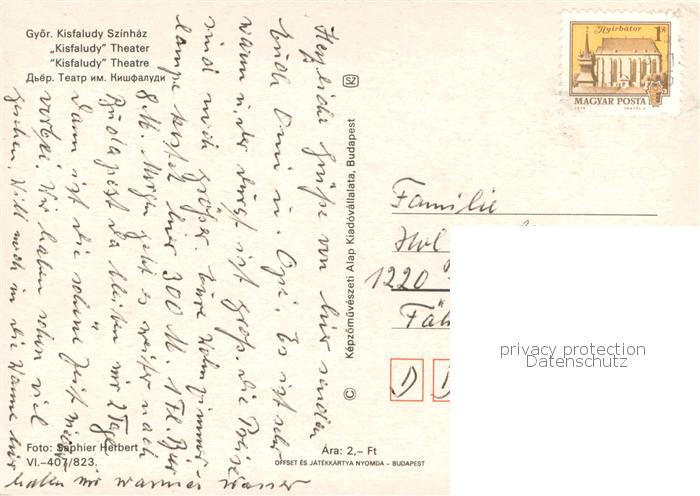 Győr. Kisfaludy Színház
„Kisfaludy" Theater
“Kisfaludy" Theatre
Дьёр. Театр им. Кишфалуди
Herzliche Grüße von hier senden
Euch Omi u. Opi. Es ist sehr
warm u. der Durst ist groß. Die Preise
sind noch größer. Eure Wohnzimmer-
lampe kostet hier 300 M 1 Fl. Bier
8 M. Morgen geht es weiter nach
Budapest da bleiben wir 2 Tage
dann ist die schöne Zeit wieder
vorbei. Wir haben schon viel
gesehen. Will noch in die Wanne hier
haben wir warmes Wasser
Foto: Saphier Herbert
VI.-407/823.
SZ
© Képzőművészeti Alap Kiadóvállalata, Budapest
Ára: 2,– Ft
OFFSET ÉS JÁTÉKKÁRTYA NYOMDA – BUDAPEST
Nyírbátor
1 Ft
MAGYAR POSTA
Familie
1220
D D
privacy protection
Datenschutz